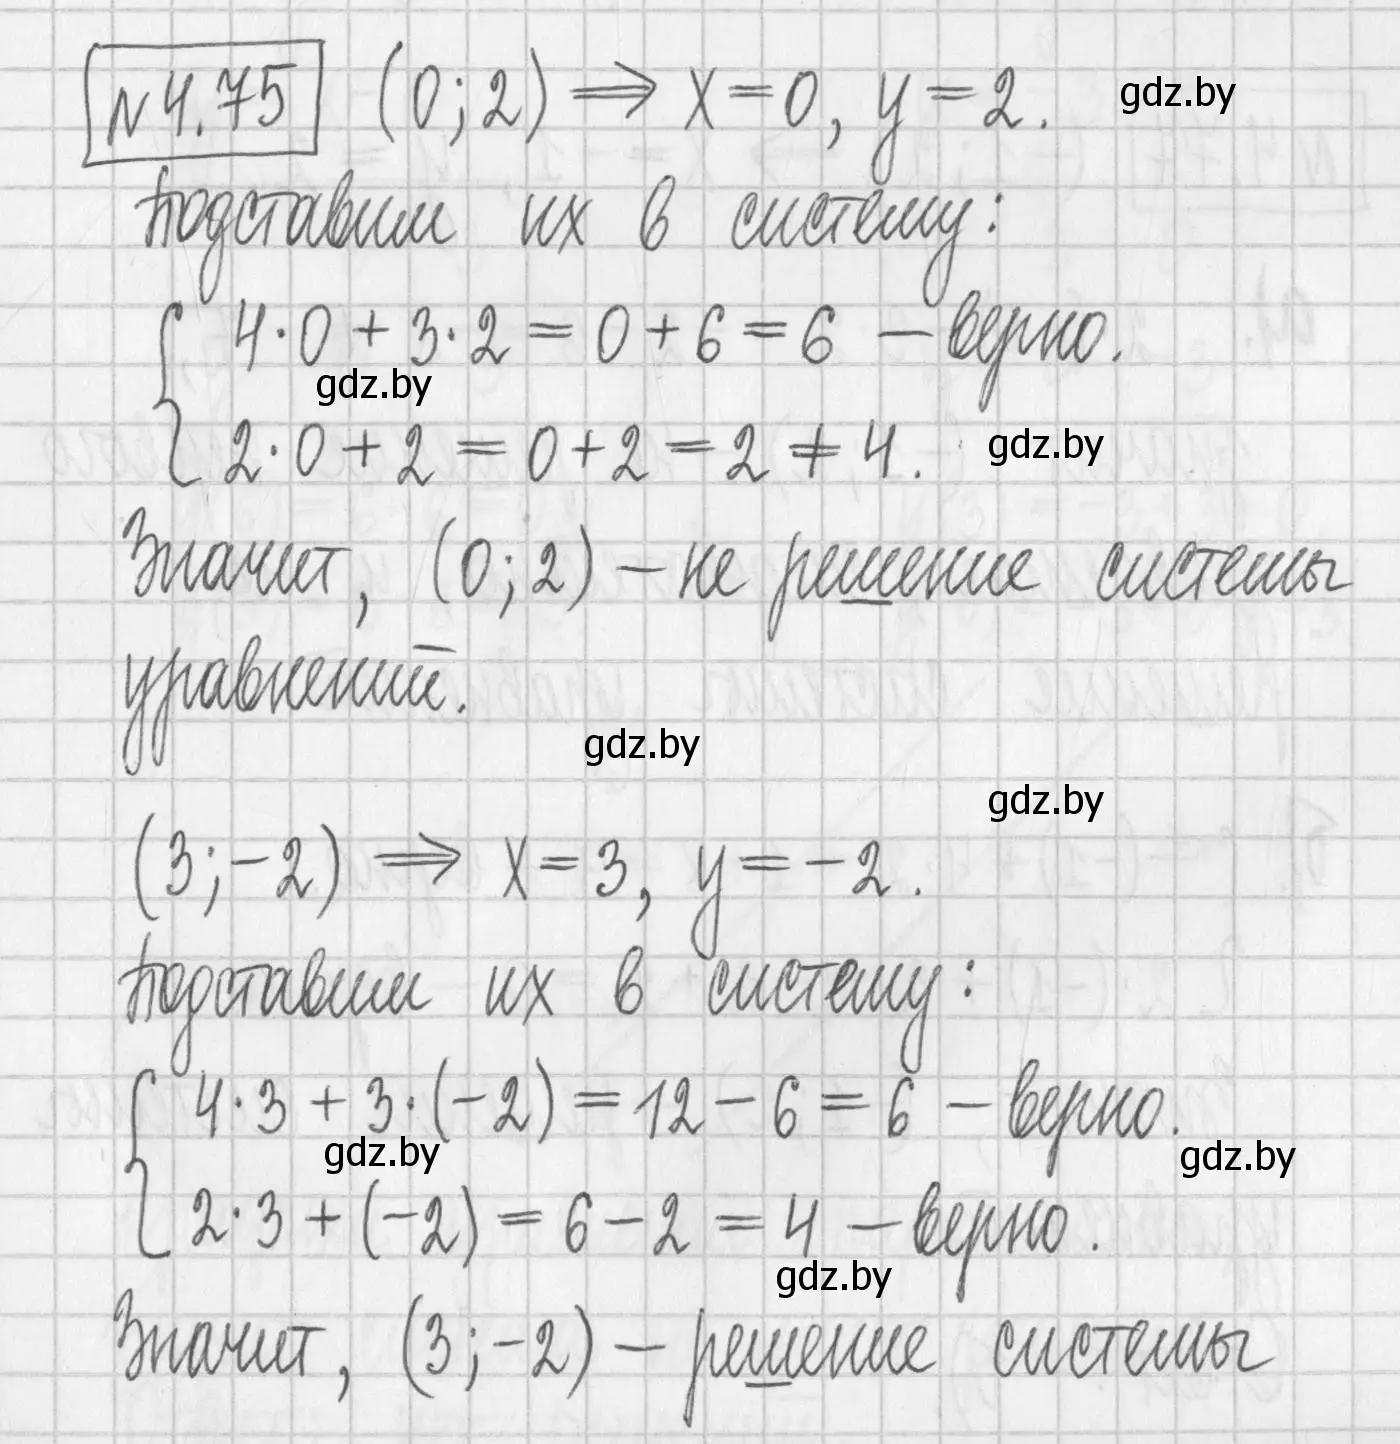 №4.75 (0;2) ⟹ x=0, y=2. gdz.by
Подставим их в систему:
4·0+3·2=0+6=6 – верно.
gdz.by
2·0+2=0+2=2≠4. gdz.by
Значит, (0;2) – не решение системы
уравнений.
gdz.by
gdz.by
(3;-2) ⟹ x=3, y=-2.
Подставим их в систему:
4·3+3·(-2)=12-6=6 – верно.
gdz.by gdz.by
2·3+(-2)=6-2=4 – верно.
gdz.by
Значит, (3;-2) – решение системы